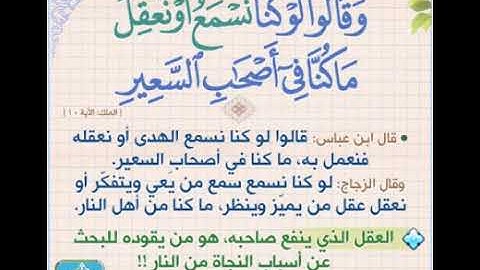 وَقَالُوا۟ لَوْ كُنَّا نَسْمَعُ أَوْ نَعْقِلُ
مَا كُنَّا فِىٓ أَصْحَٰبِ ٱلسَّعِيرِ
[ الملك: الآية ١٠ ]
• قال ابن عباس: قالوا لو كنا نسمع الهدى أو نعقله
فنعمل به، ما كنا في أصحاب السعير.
وقال الزجاج: لو كنا نسمع سمع من يعي ويتفكر أو
نعقل عقل من يميّز وينظر، ما كنا من أهل النار.
العقل الذي ينفع صاحبه، هو من يقوده للبحث
عن أسباب النجاة من النار !!